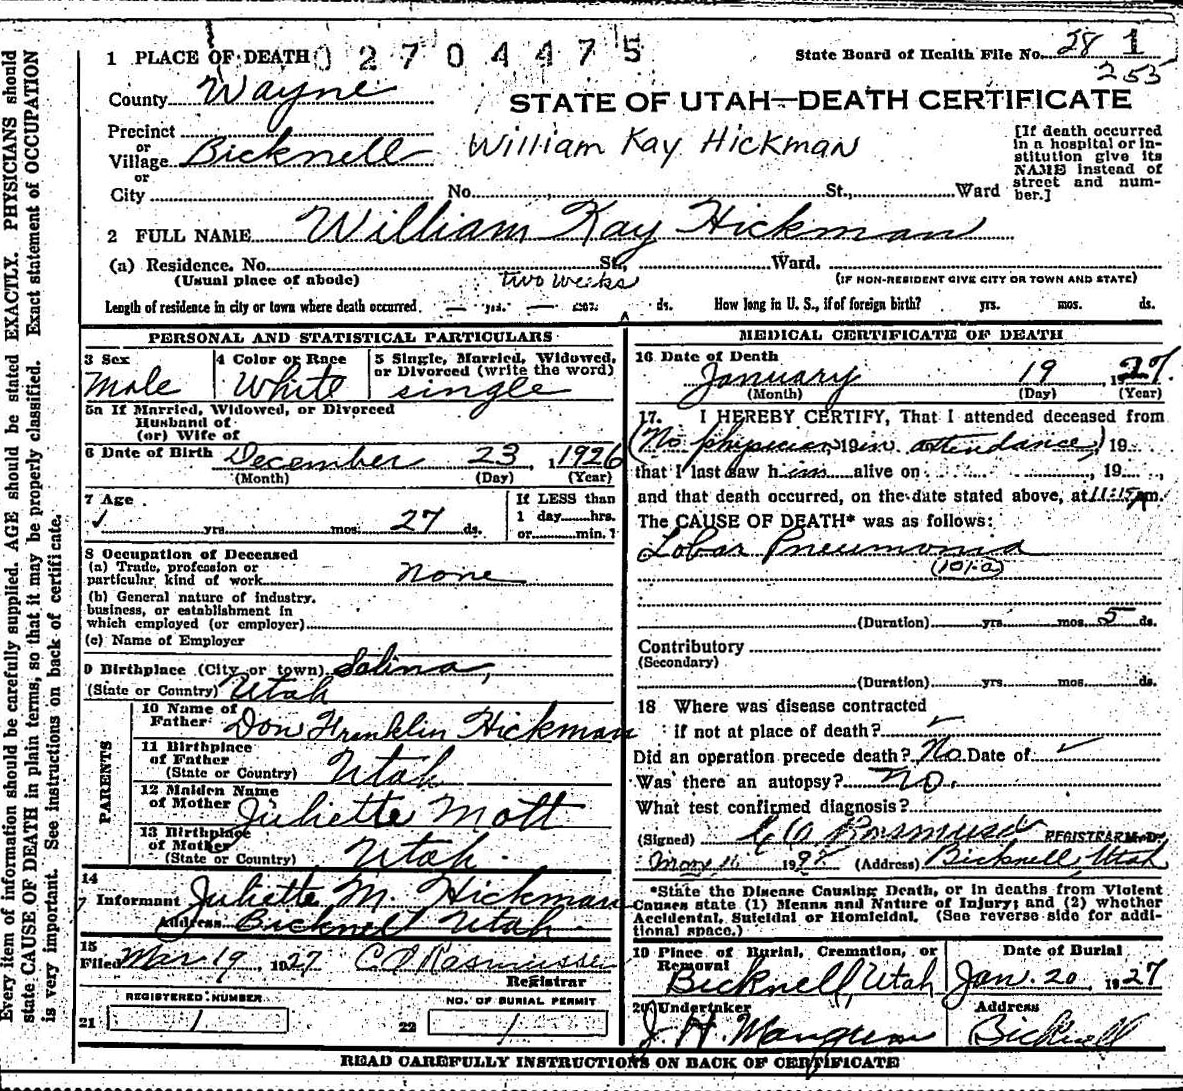 Every item of information should be carefully supplied. AGE should be stated EXACTLY. PHYSICIANS should
state CAUSE OF DEATH in plain terms, so that it may be properly classified. Exact statement of OCCUPATION
is very important. See instructions on back of certificate.
1 PLACE OF DEATH 02704475 State Board of Health File No. 28 1
255
County Wayne
STATE OF UTAH—DEATH CERTIFICATE
Precinct
or
Village Bicknell William Kay Hickman
or
City No. St., Ward
[If death occurred
in a hospital or in-
stitution give its
NAME instead of
street and num-
ber.]
2 FULL NAME William Kay Hickman
(a) Residence. No. St., Ward.
(Usual place of abode) two weeks (IF NON-RESIDENT GIVE CITY OR TOWN AND STATE)
Length of residence in city or town where death occurred — yrs. — mos. ds. How long in U. S., if of foreign birth? yrs. mos. ds.
PERSONAL AND STATISTICAL PARTICULARS
3 Sex
Male
4 Color or Race
White
5 Single, Married, Widowed,
or Divorced (write the word)
single
5a If Married, Widowed, or Divorced
Husband of
(or) Wife of
6 Date of Birth December 23, 1926
(Month) (Day) (Year)
7 Age
yrs. mos. 27 ds.
If LESS than
1 day hrs.
or min.?
8 Occupation of Deceased
(a) Trade, profession or
particular kind of work none
(b) General nature of industry,
business, or establishment in
which employed (or employer)
(c) Name of Employer
9 Birthplace (City or town) Salina,
(State or Country) Utah
PARENTS
10 Name of
Father Don Franklin Hickman
11 Birthplace
of Father
(State or Country) Utah
12 Maiden Name
of Mother Juliette Mott
13 Birthplace
of Mother
(State or Country) Utah.
14
Informant Juliette M. Hickman
Address Bicknell Utah.
15
Filed Mar 19, 1927 C A Rasmussen
Registrar
REGISTERED NUMBER
21 1
NO. OF BURIAL PERMIT
22 1
MEDICAL CERTIFICATE OF DEATH
16 Date of Death
January 19, 1927.
(Month) (Day) (Year)
17. I HEREBY CERTIFY, That I attended deceased from
(No physician 19 in attendance) 19
that I last saw him alive on , 19
and that death occurred, on the date stated above, at 11:15 m.
The CAUSE OF DEATH* was as follows:
Lobar Pneumonia
(101-a)
(Duration) yrs. mos. 5 ds.
Contributory
(Secondary)
(Duration) yrs. mos. ds.
18 Where was disease contracted
if not at place of death?
Did an operation precede death? No Date of
Was there an autopsy? No.
What test confirmed diagnosis?
(Signed) C A Rasmussen REGISTRAR M. D.
19 (Address) Bicknell, Utah
*State the Disease Causing Death, or in deaths from Violent
Causes state (1) Means and Nature of Injury; and (2) whether
Accidental, Suicidal or Homicidal. (See reverse side for addi-
tional space.)
19 Place of Burial, Cremation, or
Removal
Bicknell, Utah
Date of Burial
Jan. 20, 1927
20 Undertaker
J. H. Mangum
Address
Bicknell
READ CAREFULLY INSTRUCTIONS ON BACK OF CERTIFICATE